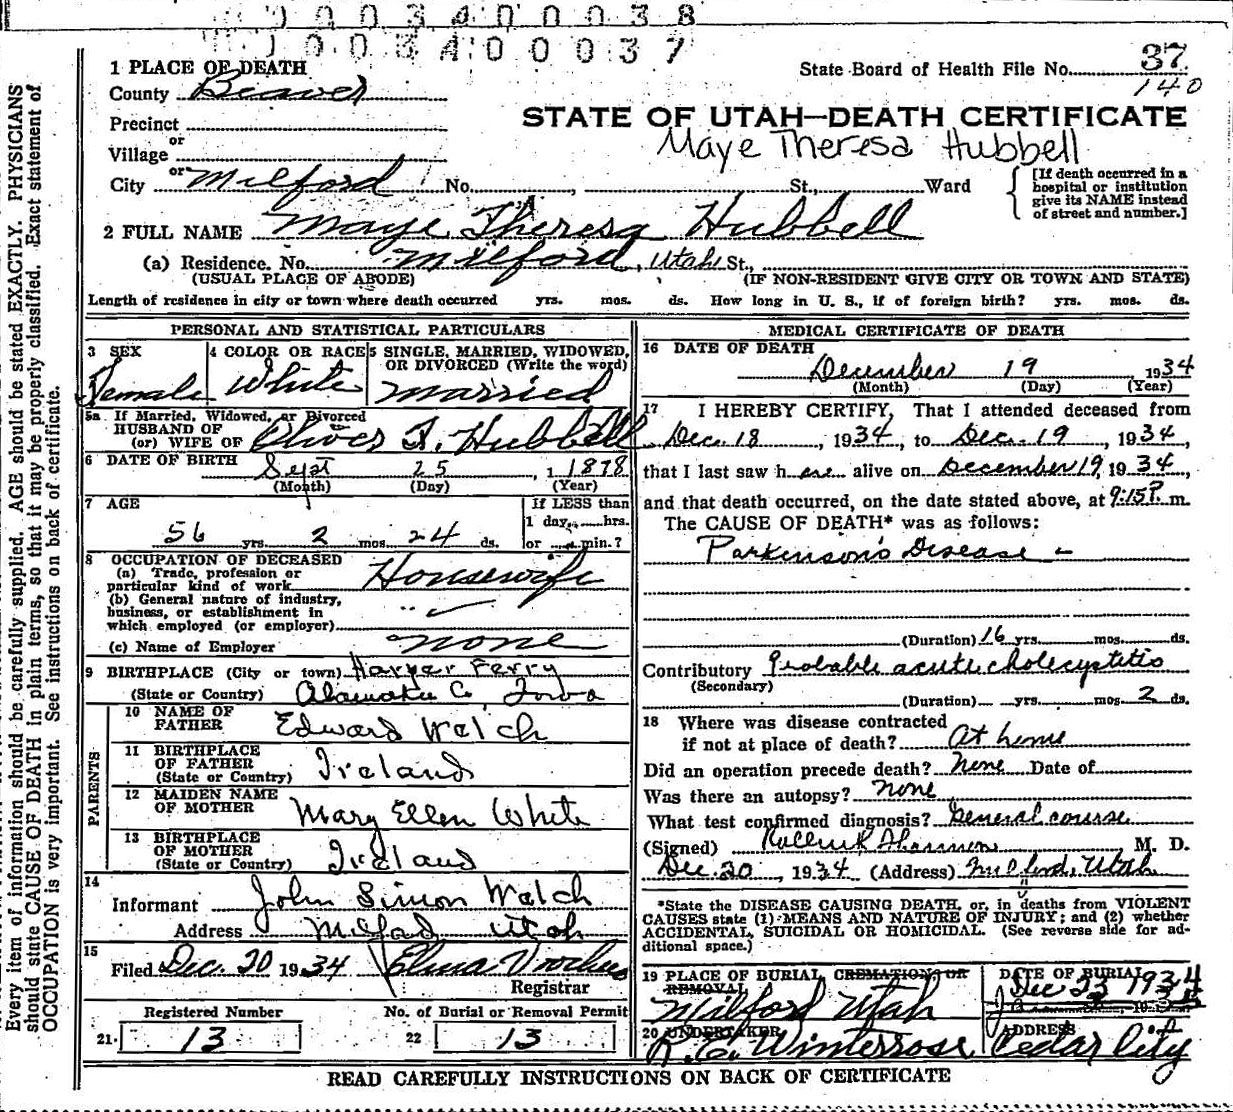 0 0 0 3 4 0 0 0 3 8
1 0 0 3 4 0 0 0 3 7
1 PLACE OF DEATH
County Beaver
Precinct
or
Village
or
City Milford No. , St., Ward
State Board of Health File No. 37
140
STATE OF UTAH—DEATH CERTIFICATE
Maye Theresa Hubbell
[If death occurred in a
hospital or institution
give its NAME instead
of street and number.]
2 FULL NAME Maye Theresa Hubbell
(a) Residence. No. Milford, Utah St.,
(USUAL PLACE OF ABODE) (IF NON-RESIDENT GIVE CITY OR TOWN AND STATE)
Length of residence in city or town where death occurred yrs. mos. ds. How long in U. S., if of foreign birth? yrs. mos. ds.
PERSONAL AND STATISTICAL PARTICULARS
3 SEX Female
4 COLOR OR RACE White
5 SINGLE, MARRIED, WIDOWED,
OR DIVORCED (Write the word)
married
5a If Married, Widowed, or Divorced
HUSBAND OF
(or) WIFE OF Oliver F. Hubbell
6 DATE OF BIRTH Sept 25, 1 1878
(Month) (Day) (Year)
7 AGE
56 yrs. 2 mos. 24 ds.
If LESS than
1 day, hrs.
or min.?
8 OCCUPATION OF DECEASED
(a) Trade, profession or
particular kind of work Housewife
(b) General nature of industry,
business, or establishment in
which employed (or employer) " ✓
(c) Name of Employer none
9 BIRTHPLACE (City or town) Harper Ferry
(State or Country) Alamakee Co, Iowa
PARENTS
10 NAME OF
FATHER Edward Walch
11 BIRTHPLACE
OF FATHER
(State or Country) Ireland
12 MAIDEN NAME
OF MOTHER Mary Ellen White
13 BIRTHPLACE
OF MOTHER
(State or Country) Ireland
14
Informant John Simon Walch
Address Milford Utah
15
Filed Dec. 20 1934 Elma Voorhees
Registrar
Registered Number
21. 13
No. of Burial or Removal Permit
22 13
MEDICAL CERTIFICATE OF DEATH
16 DATE OF DEATH
December 19 1934
(Month) (Day) (Year)
17 I HEREBY CERTIFY, That I attended deceased from
Dec. 18, 1934, to Dec. 19, 1934,
that I last saw her alive on December 19, 1934,
and that death occurred, on the date stated above, at 9:15P. m.
The CAUSE OF DEATH* was as follows:
Parkinson's Disease -
(Duration) 16 yrs. mos. ds.
Contributory Probable acute cholecystitis
(Secondary)
(Duration) yrs. mos. 2 ds.
18 Where was disease contracted
if not at place of death? At home
Did an operation precede death? None Date of
Was there an autopsy? none
What test confirmed diagnosis? General course
(Signed) M. D.
Dec. 20, 1934 (Address) Milford, Utah
*State the DISEASE CAUSING DEATH, or, in deaths from VIOLENT
CAUSES state (1) MEANS AND NATURE OF INJURY; and (2) whether
ACCIDENTAL, SUICIDAL OR HOMICIDAL. (See reverse side for ad-
ditional space.)
19 PLACE OF BURIAL CREMATION, OR
REMOVAL
Milford Utah
DATE OF BURIAL
Dec 23 1934
20 UNDERTAKER
Winterrose
ADDRESS
Cedar City
READ CAREFULLY INSTRUCTIONS ON BACK OF CERTIFICATE
Every item of information should be carefully supplied. AGE should be stated EXACTLY. PHYSICIANS
should state CAUSE OF DEATH in plain terms, so that it may be properly classified. Exact statement of
OCCUPATION is very important. See instructions on back of certificate.